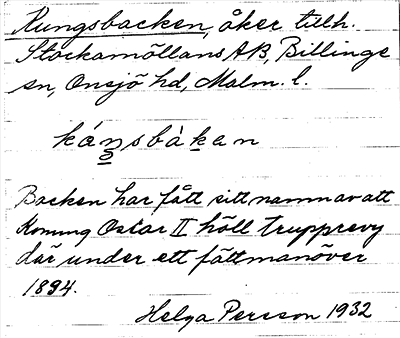 Kungsbacken, åker tillh.
Stockamöllans AB, Billinge
sn, Onsjö hd, Malm. l.
Backen har fått sitt namn av att
Konung Oscar II höll trupprevy
där under ett fältmanöver
1894.
Helga Persson 1932